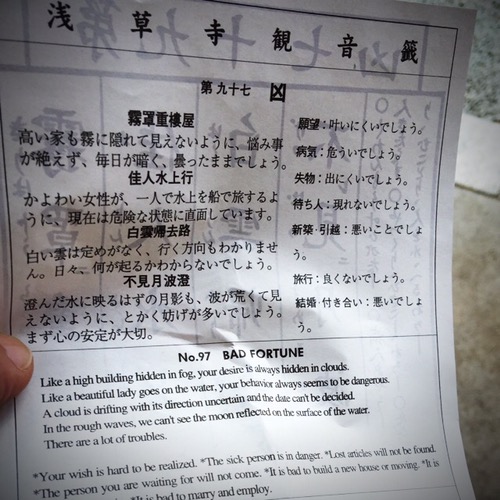 浅草寺観音籤
第九十七 凶
霧罩重樓屋
高い家も霧に隠れて見えないように、悩み事
が絶えず、毎日が暗く、曇ったままでしょう。
佳人水上行
かよわい女性が、一人で水上を船で旅するよ
うに、現在は危険な状態に直面しています。
白雲帰去路
白い雲は定めがなく、行く方向もわかりませ
ん。日々、何が起るかわからないでしょう。
不見月波澄
澄んだ水に映るはずの月影も、波が荒くて見
えないように、とかく妨げが多いでしょう。
まず心の安定が大切。
願望：叶いにくいでしょう。
病気：危ういでしょう。
失物：出にくいでしょう。
待ち人：現れないでしょう。
新築・引越：悪いことでしょ
う。
旅行：良くないでしょう。
結婚・付き合い：悪いでしょ
う。
No.97 BAD FORTUNE
Like a high building hidden in fog, your desire is always hidden in clouds.
Like a beautiful lady goes on the water, your behavior always seems to be dangerous.
A cloud is drifting with its direction uncertain and the date can't be decided.
In the rough waves, we can't see the moon reflected on the surface of the water.
There are a lot of troubles.
*Your wish is hard to be realized. *The sick person is in danger. *Lost articles will not be found.
*The person you are waiting for will not come. *It is bad to build a new house or moving. *It is
*It is bad to marry and employ.